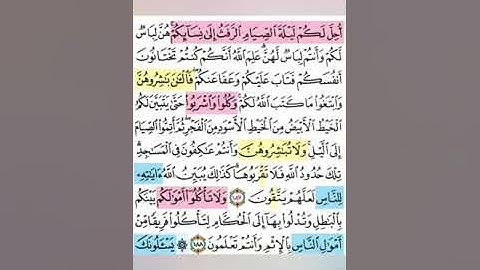 أُحِلَّ لَكُمْ لَيْلَةَ ٱلصِّيَامِ ٱلرَّفَثُ إِلَىٰ نِسَآئِكُمْ ۚ هُنَّ لِبَاسٌ
لَّكُمْ وَأَنتُمْ لِبَاسٌ لَّهُنَّ ۗ عَلِمَ ٱللَّهُ أَنَّكُمْ كُنتُمْ تَخْتَانُونَ
أَنفُسَكُمْ فَتَابَ عَلَيْكُمْ وَعَفَا عَنكُمْ ۖ فَٱلْـَٰٔنَ بَـٰشِرُوهُنَّ
وَٱبْتَغُوا۟ مَا كَتَبَ ٱللَّهُ لَكُمْ ۚ وَكُلُوا۟ وَٱشْرَبُوا۟ حَتَّىٰ يَتَبَيَّنَ لَكُمُ
ٱلْخَيْطُ ٱلْأَبْيَضُ مِنَ ٱلْخَيْطِ ٱلْأَسْوَدِ مِنَ ٱلْفَجْرِ ۖ ثُمَّ أَتِمُّوا۟ ٱلصِّيَامَ
إِلَى ٱلَّيْلِ ۚ وَلَا تُبَـٰشِرُوهُنَّ وَأَنتُمْ عَـٰكِفُونَ فِى ٱلْمَسَـٰجِدِ ۗ
تِلْكَ حُدُودُ ٱللَّهِ فَلَا تَقْرَبُوهَا ۗ كَذَٰلِكَ يُبَيِّنُ ٱللَّهُ ءَايَـٰتِهِۦ
لِلنَّاسِ لَعَلَّهُمْ يَتَّقُونَ ١٨٧ وَلَا تَأْكُلُوٓا۟ أَمْوَٰلَكُم بَيْنَكُم
بِٱلْبَـٰطِلِ وَتُدْلُوا۟ بِهَآ إِلَى ٱلْحُكَّامِ لِتَأْكُلُوا۟ فَرِيقًا مِّنْ
أَمْوَٰلِ ٱلنَّاسِ بِٱلْإِثْمِ وَأَنتُمْ تَعْلَمُونَ ١٨٨ ۞ يَسْـَٔلُونَكَ